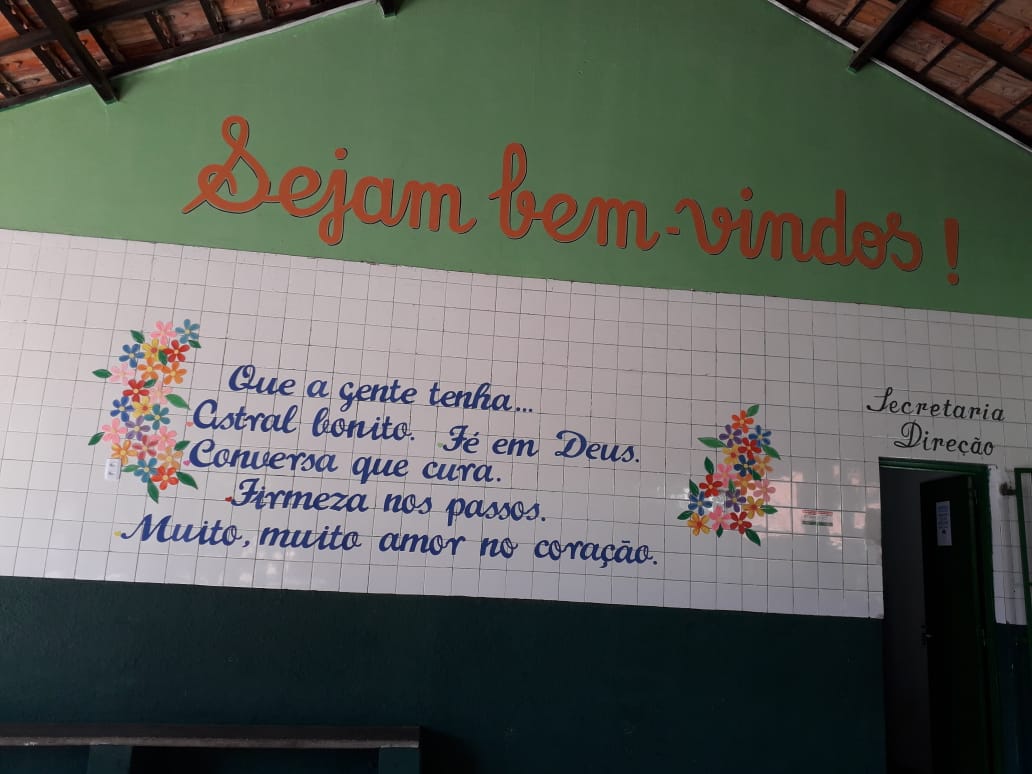 Sejam bem-vindos!
Que a gente tenha...
Astral bonito. Fé em Deus.
Conversa que cura.
Firmeza nos passos.
Muito, muito amor no coração.
Secretaria
Direção